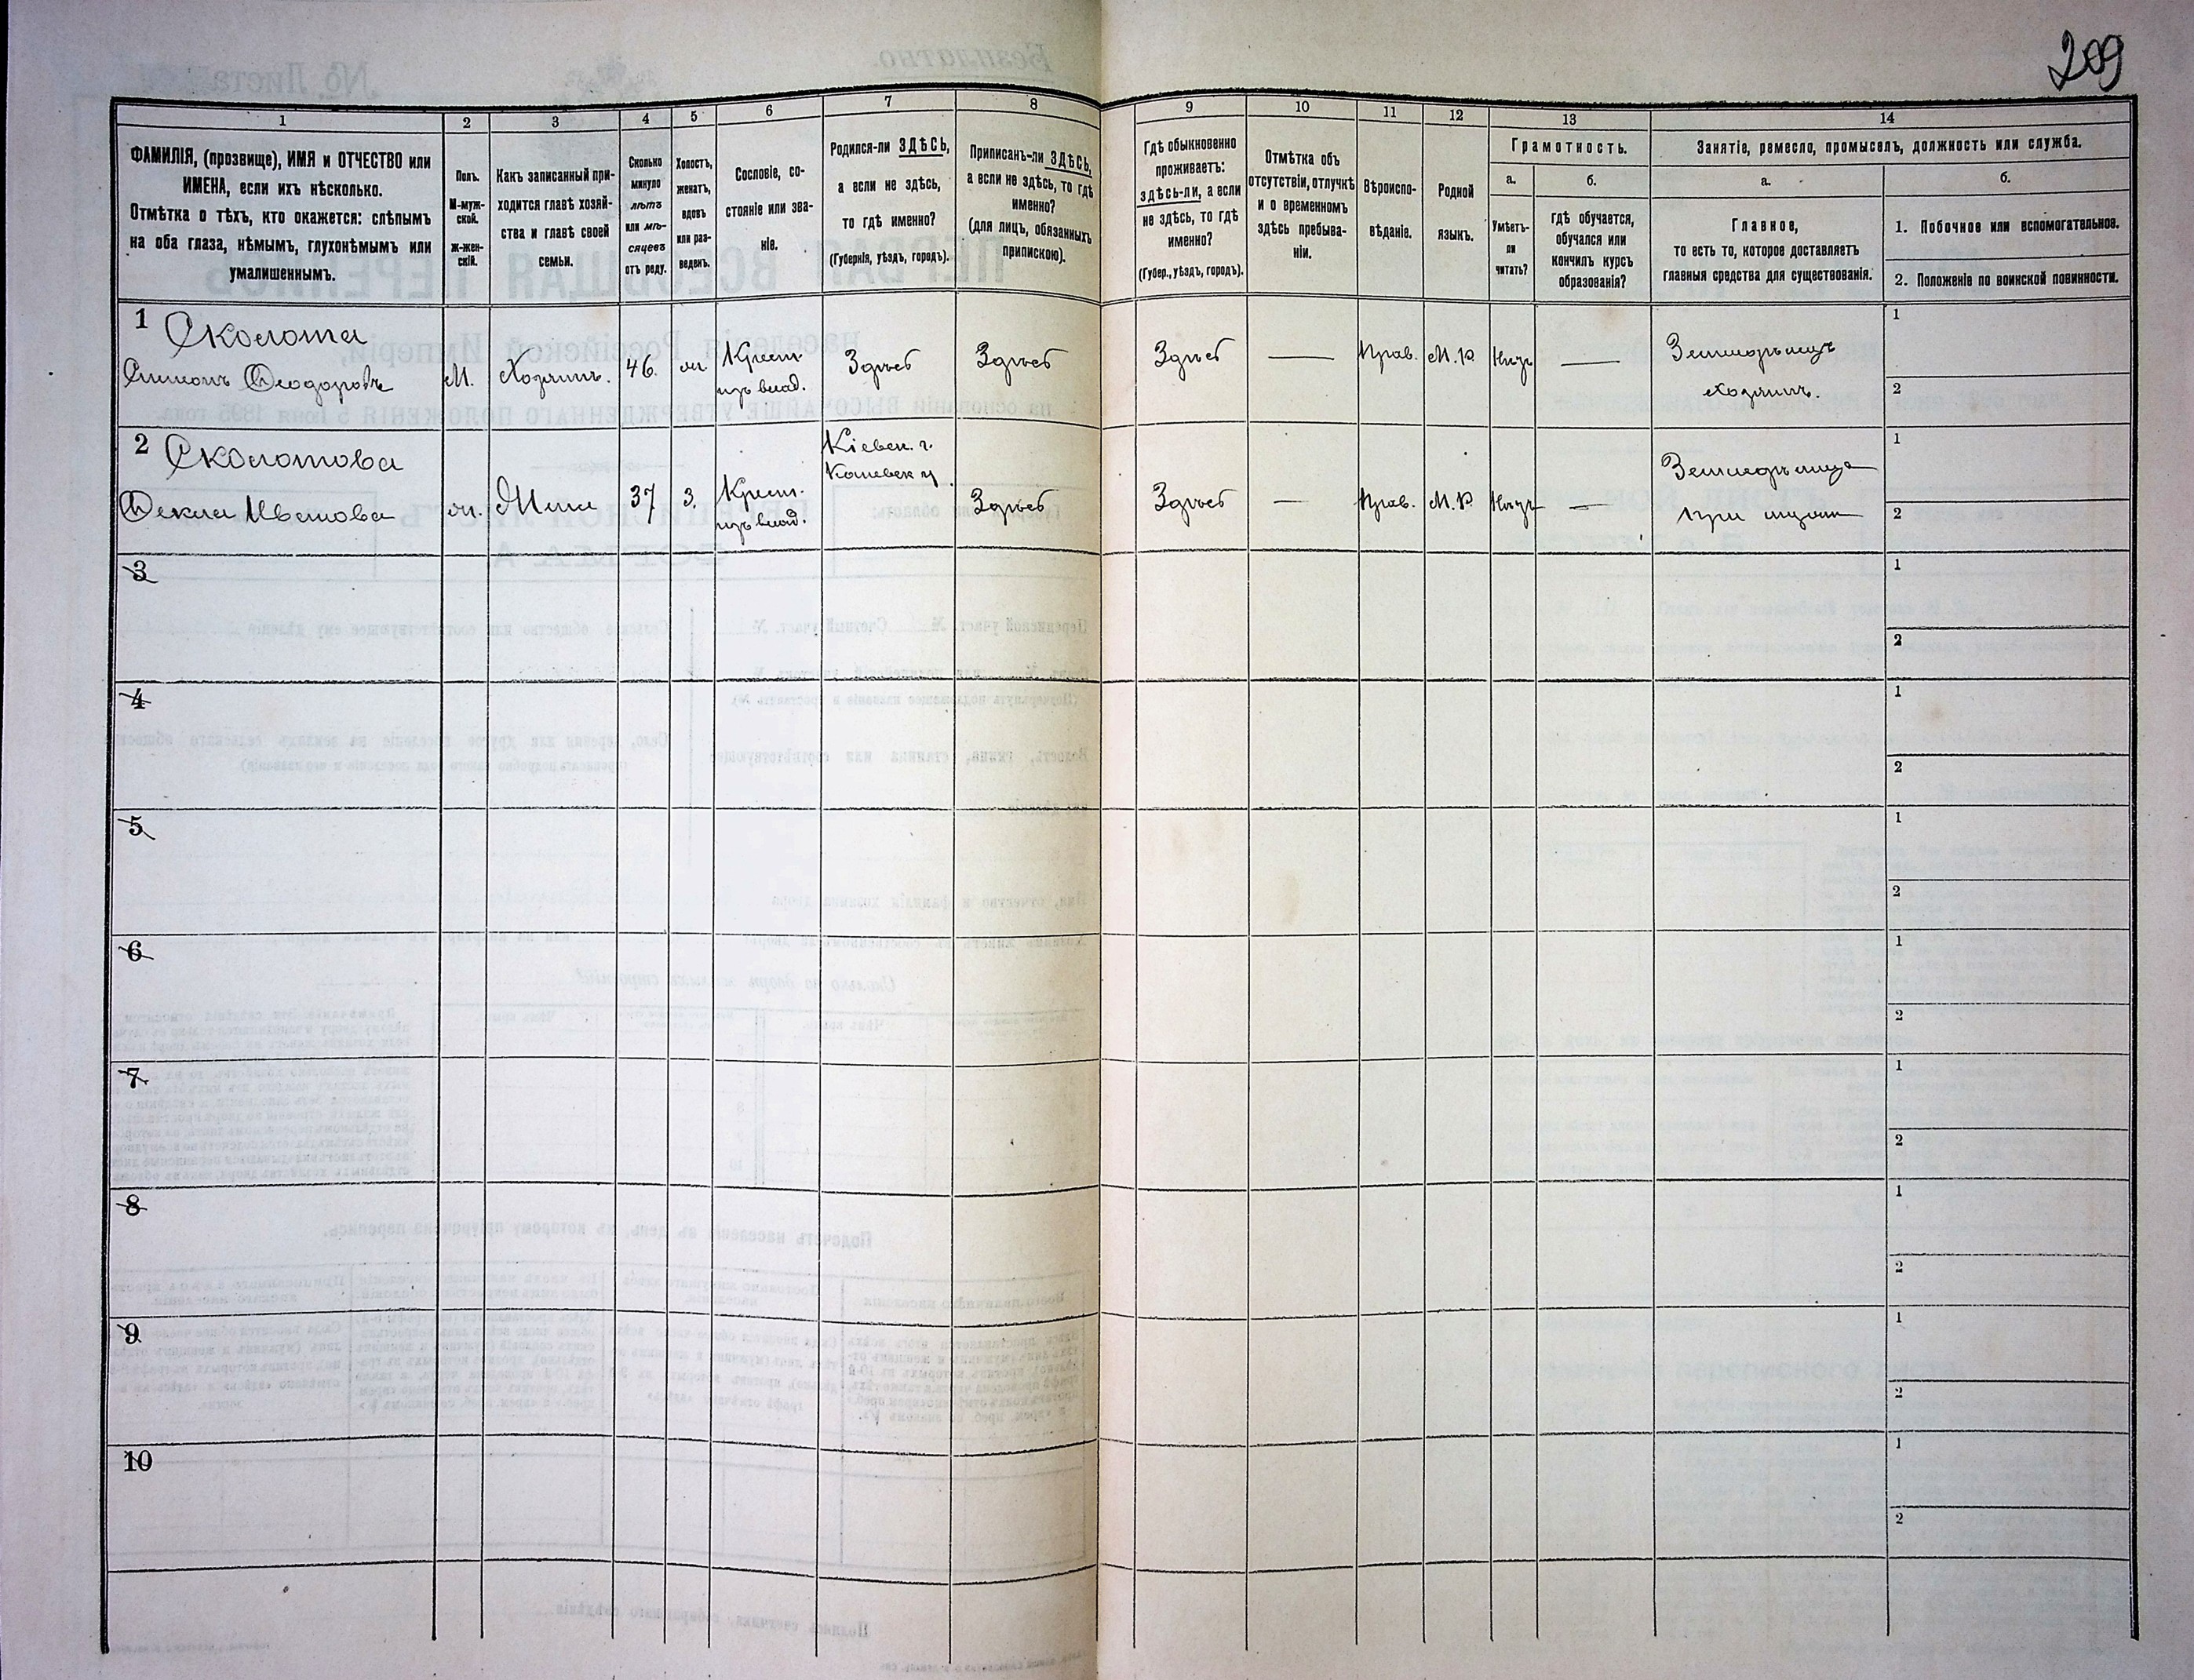 209
1
2
3
4
5
6
7
8
9
10
11
12
13
14
ФАМИЛІЯ, (прозвище), ИМЯ и ОТЧЕСТВО или
ИМЕНА, если ихъ нѣсколько.
Отмѣтка о тѣхъ, кто окажется: слѣпымъ
на оба глаза, нѣмымъ, глухонѣмымъ или
умалишеннымъ.
Полъ.
М-муж-
ской.
ж-жен-
скій.
Какъ записанный при-
ходится главѣ хозяй-
ства и главѣ своей
семьи.
Сколько
минуло
лѣтъ
или мѣ-
сяцевъ
отъ роду.
Холостъ,
женатъ,
вдовъ
или раз-
веденъ.
Сословіе, со-
стояніе или зва-
ніе.
Родился-ли ЗДѢСЬ,
а если не здѣсь,
то гдѣ именно?
(Губернія, уѣздъ, городъ).
Приписанъ-ли ЗДѢСЬ,
а если не здѣсь, то гдѣ
именно?
(для лицъ, обязанныхъ
припискою).
Гдѣ обыкновенно
проживаетъ:
здѣсь-ли, а если
не здѣсь, то гдѣ
именно?
(Губер., уѣздъ, городъ).
Отмѣтка объ
отсутствіи, отлучкѣ
и о временномъ
здѣсь пребыва-
ніи.
Вѣроиспо-
вѣданіе.
Родной
языкъ.
Грамотность.
а.
б.
Умѣетъ-
ли
читать?
гдѣ обучается,
обучался или
кончилъ курсъ
образованія?
Занятіе, ремесло, промыселъ, должность или служба.
а.
б.
Главное,
то есть то, которое доставляетъ
главныя средства для существованія.
1. Побочное или вспомогательное.
2. Положеніе по воинской повинности.
1 Сколота
Симонъ Ѳеодоровъ М. Хозяинъ. 46. ж. Крест. изъ влад. Здѣсь Здѣсь Здѣсь — Прав. М.Р. Нѣтъ — Земледѣлецъ
хозяинъ.
1
2
2 Сколотова
Ѳекла Иванова ж. Жена 37 з. Крест. изъ влад. Кіевск. г.
Каневск у. Здѣсь Здѣсь — Прав. М.Р. Нѣтъ — Земледѣлица
при мужѣ
1
2
3
1
2
4
1
2
5
1
2
6
1
2
7
1
2
8
1
2
9
1
2
10
1
2